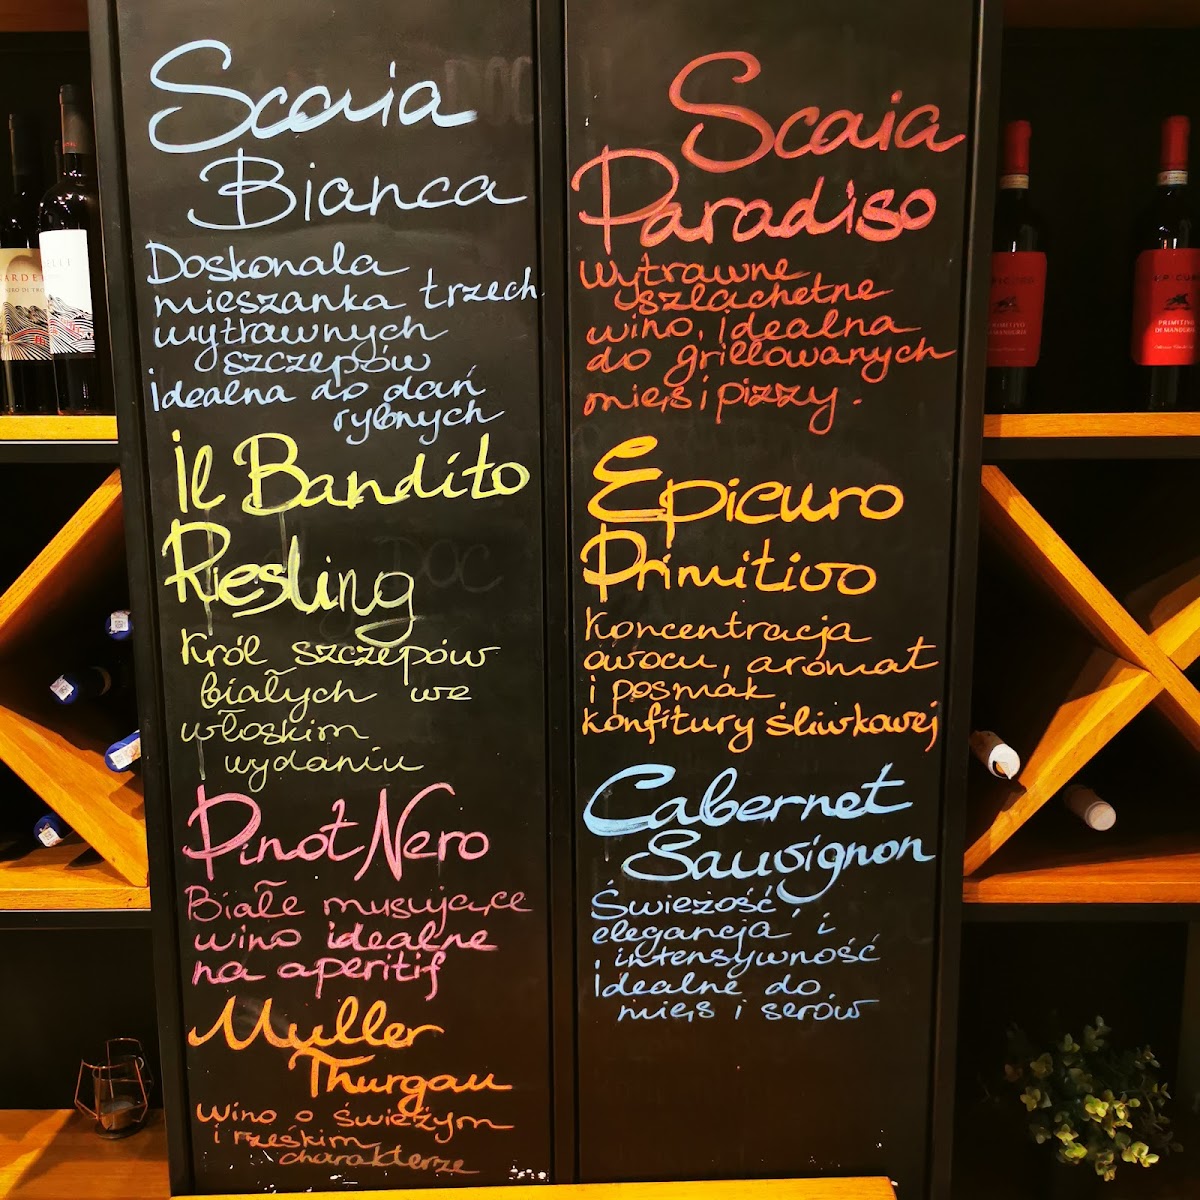 Scaia
Bianca
Doskonała
mieszanka trzech
wytrawnych
szczepów
idealna do dań
rybnych
il Bandito
Riesling
Król szczepów
białych we
włoskim
wydaniu
Pinot Nero
Białe musujące
wino idealne
na aperitif
Muller
Thurgau
Wino o świeżym
i rześkim
charakterze
Scaia
Paradiso
Wytrawne
szlachetne
wino, idealna
do grillowanych
mięs i pizzy.
Epicuro
Primitivo
Koncentracja
owocu, aromat
i posmak
konfitury śliwkowej
Cabernet
Sauvignon
Świeżość,
elegancja i
intensywność
Idealne do
mięs i serów
EPICURO
PRIMITIVO
DI MANDURIA